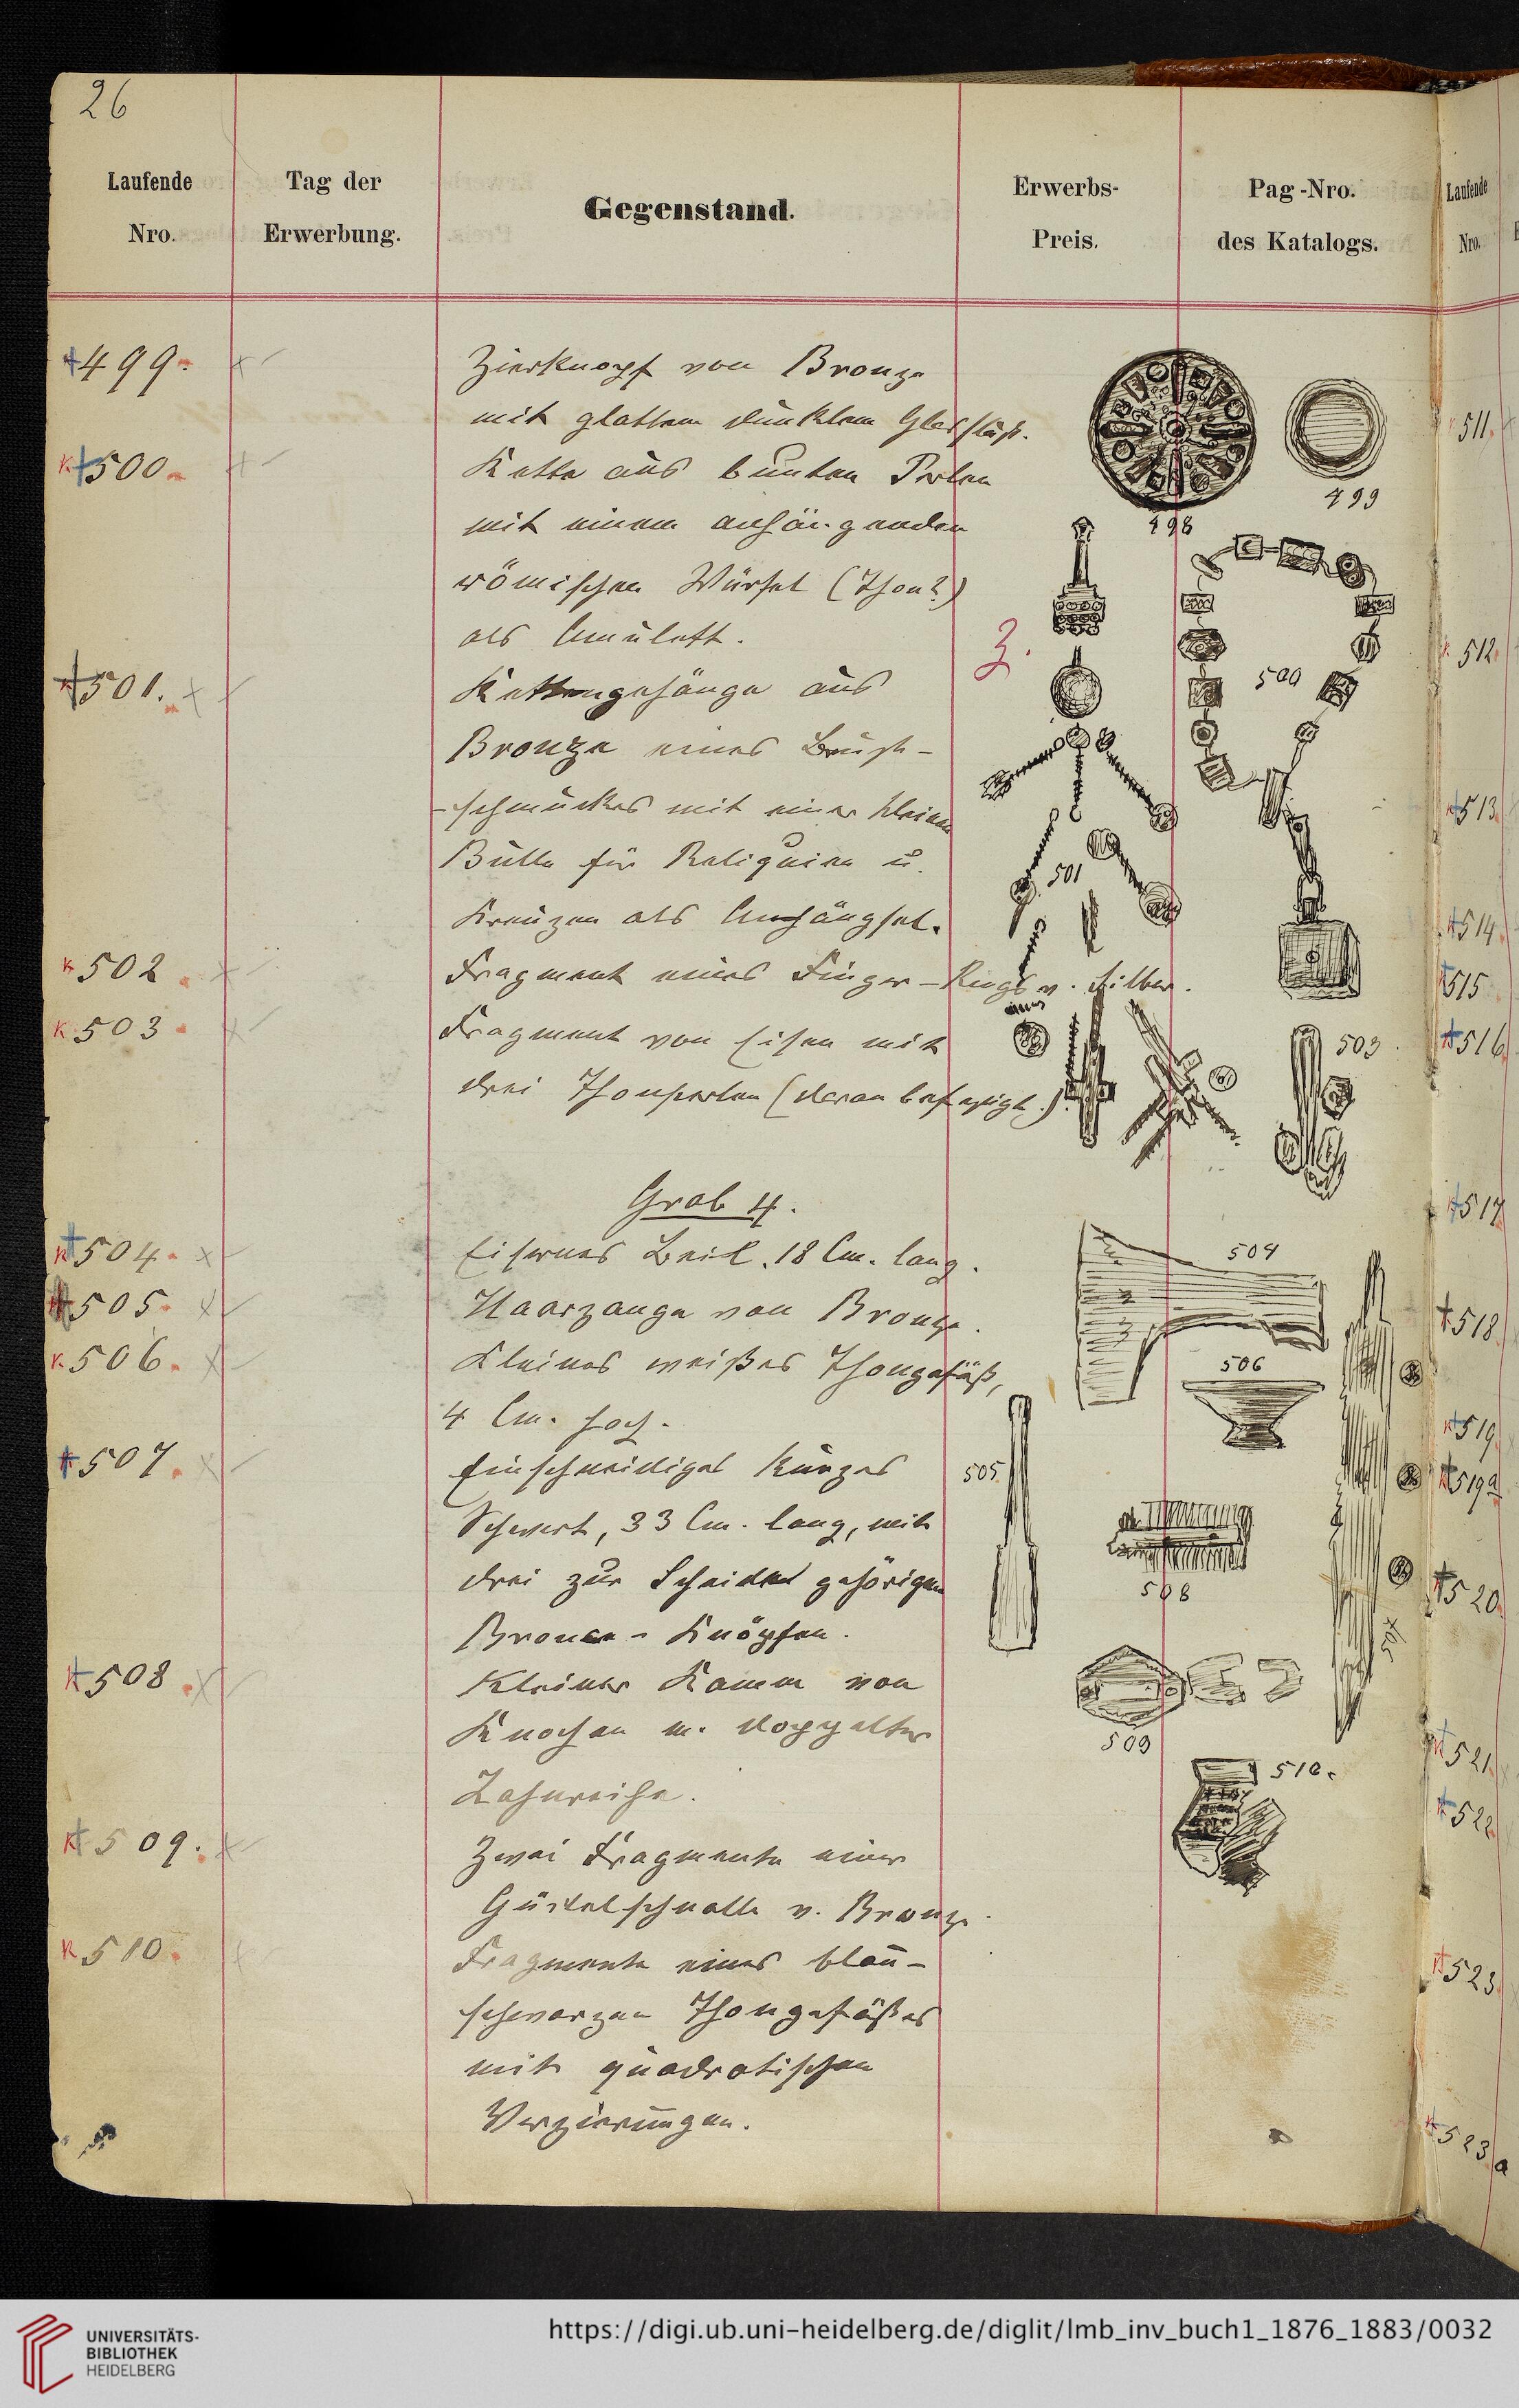 26
Laufende Nro.
Tag der Erwerbung.
Gegenstand.
Erwerbs-Preis.
Pag-Nro. des Katalogs.
499. Zierknopf von Bronze
mit glattem dunklem Glasfluß.
500. Kette aus bunten Perlen
mit einem anhängenden
römischen Würfel (Thon?)
als Amulett.
3.
501. Kettengehänge aus
Bronze eines Brust-
-schmuckes mit einer kleinen
Bulle für Reliquien u.
Kreuzen als Anhängsel.
502. Fragment eines Finger-Rings v. Silber.
503. Fragment von Eisen mit
drei Thonperlen (daran befestigt.)
Grab 4.
504. Eisernes Beil. 18 Cm. lang.
505. Haarzange von Bronze.
506. Kleines weißes Thongefäß,
4 Cm. hoch.
507. Einschneidiges kurzes
Schwert, 33 Cm. lang, mit
drei zur Scheide gehörigen
Bronce-Knöpfen.
508. Kleiner Kamm von
Knochen m. doppelter
Zahnreihe.
509. Zwei Fragmente einer
Gürtelschnalle v. Bronze.
510. Fragmente eines blau-
schwarzen Thongefäßes
mit quadratischen
Verzierungen.
498
499
500
501
503
504
506
505
508
507
509
510.
Laufende
Nro.
511.
512.
513.
514.
515
516
517
518
519
519a
520
521.
522
523
523a
UNIVERSITÄTS-
BIBLIOTHEK
HEIDELBERG
https://digi.ub.uni-heidelberg.de/diglit/lmb_inv_buch1_1876_1883/0032